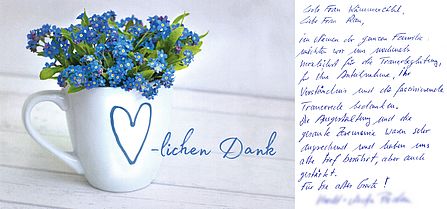 -lichen Dank
Liebe Frau
Liebe Frau
im Namen der ganzen Familie
möchten wir uns nochmals
herzlichst für die Trauerbegleitung,
für Ihre Anteilnahme, Ihr
Verständnis und die faszinierende
Trauerrede bedanken.
Die Ausgestaltung und die
gesamte Zeremonie waren sehr
ansprechend und haben uns
alle tief berührt, aber auch
gestärkt.
Für Sie alles Gute!